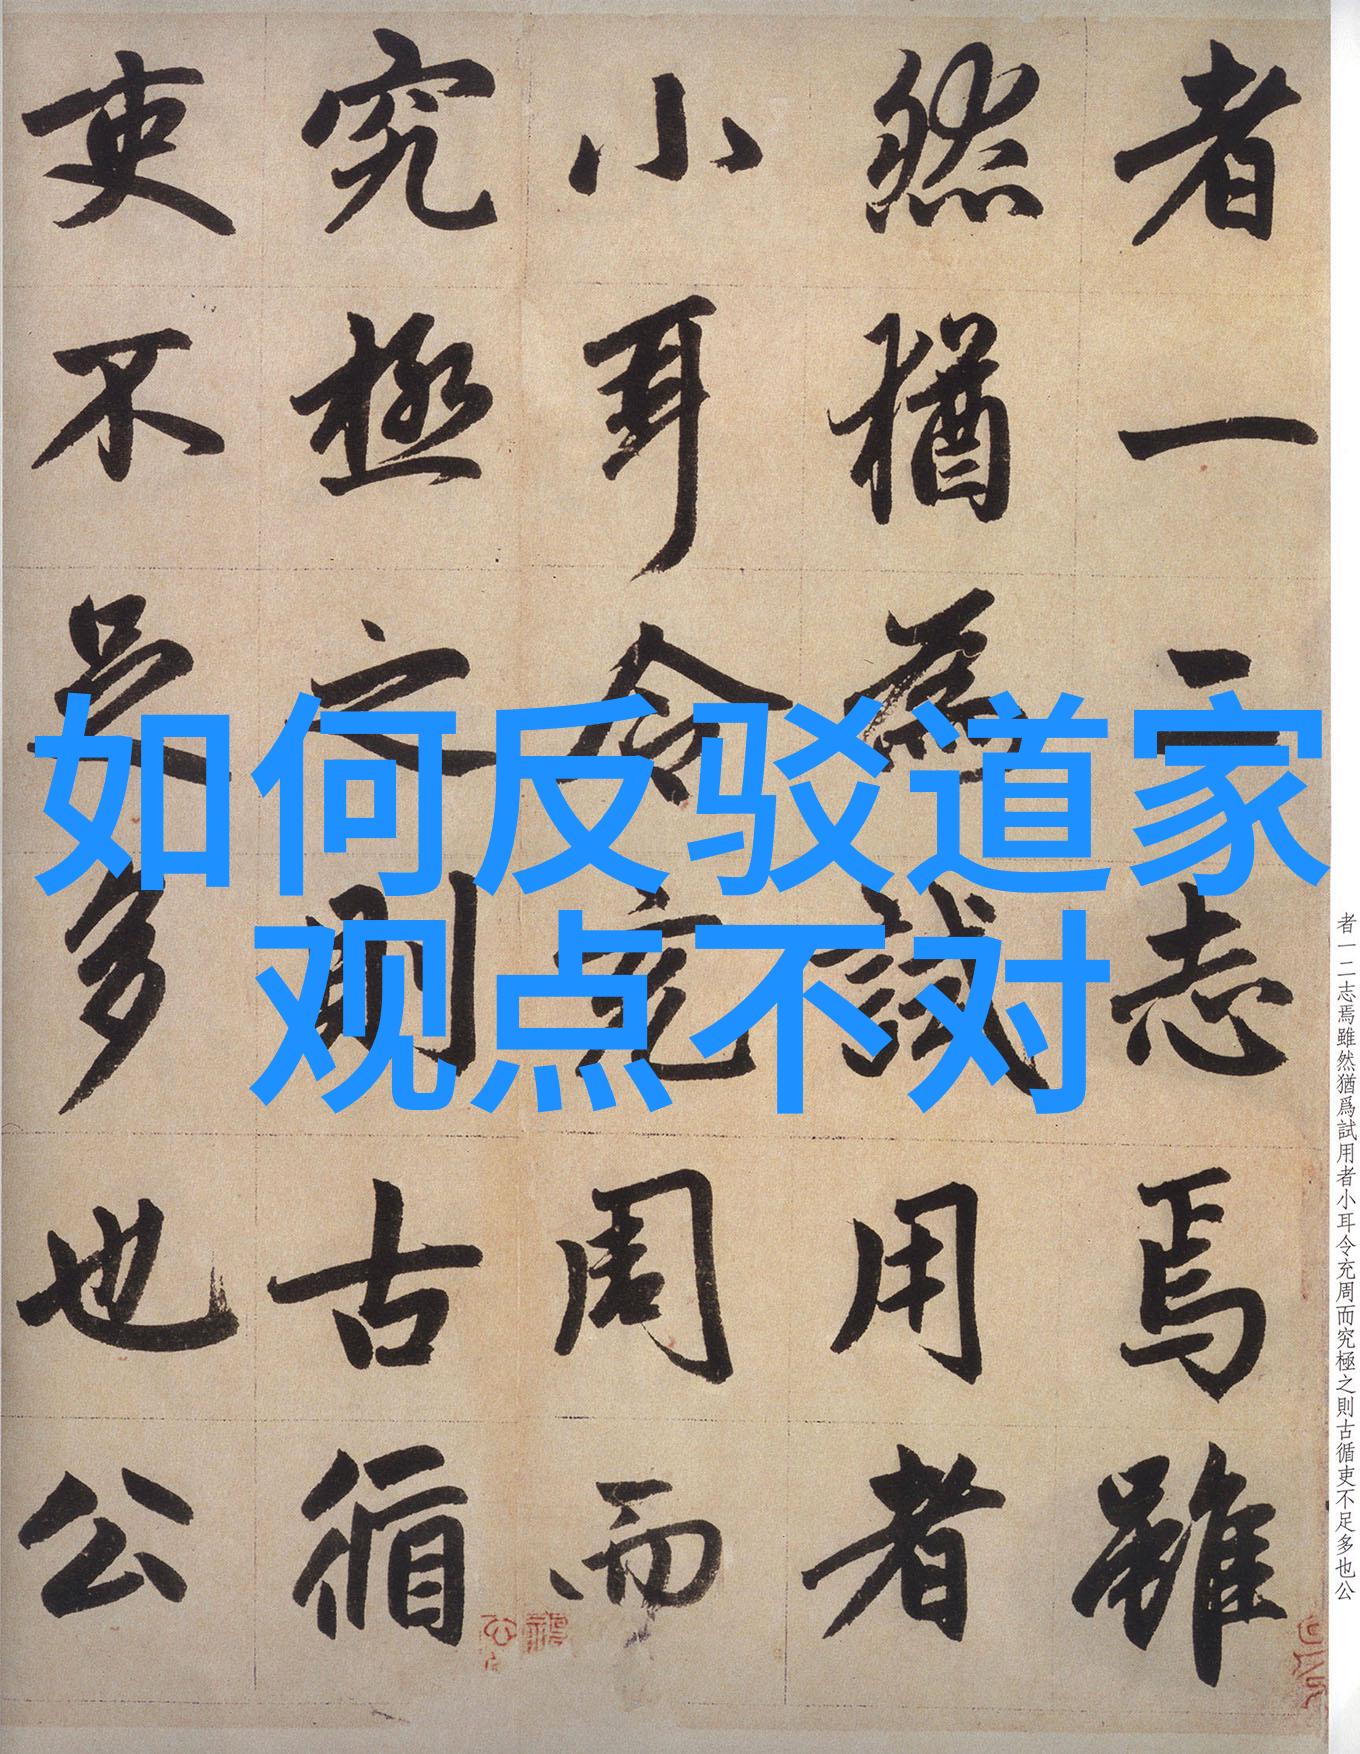 者一二志焉雖
然猶為試用者
小耳令充周而
究極之則古循
吏不足多也公
如何反驳道家
观点不对
者一二志焉雖然猶爲試用者小耳令充周而究極之則古循吏不足多也公